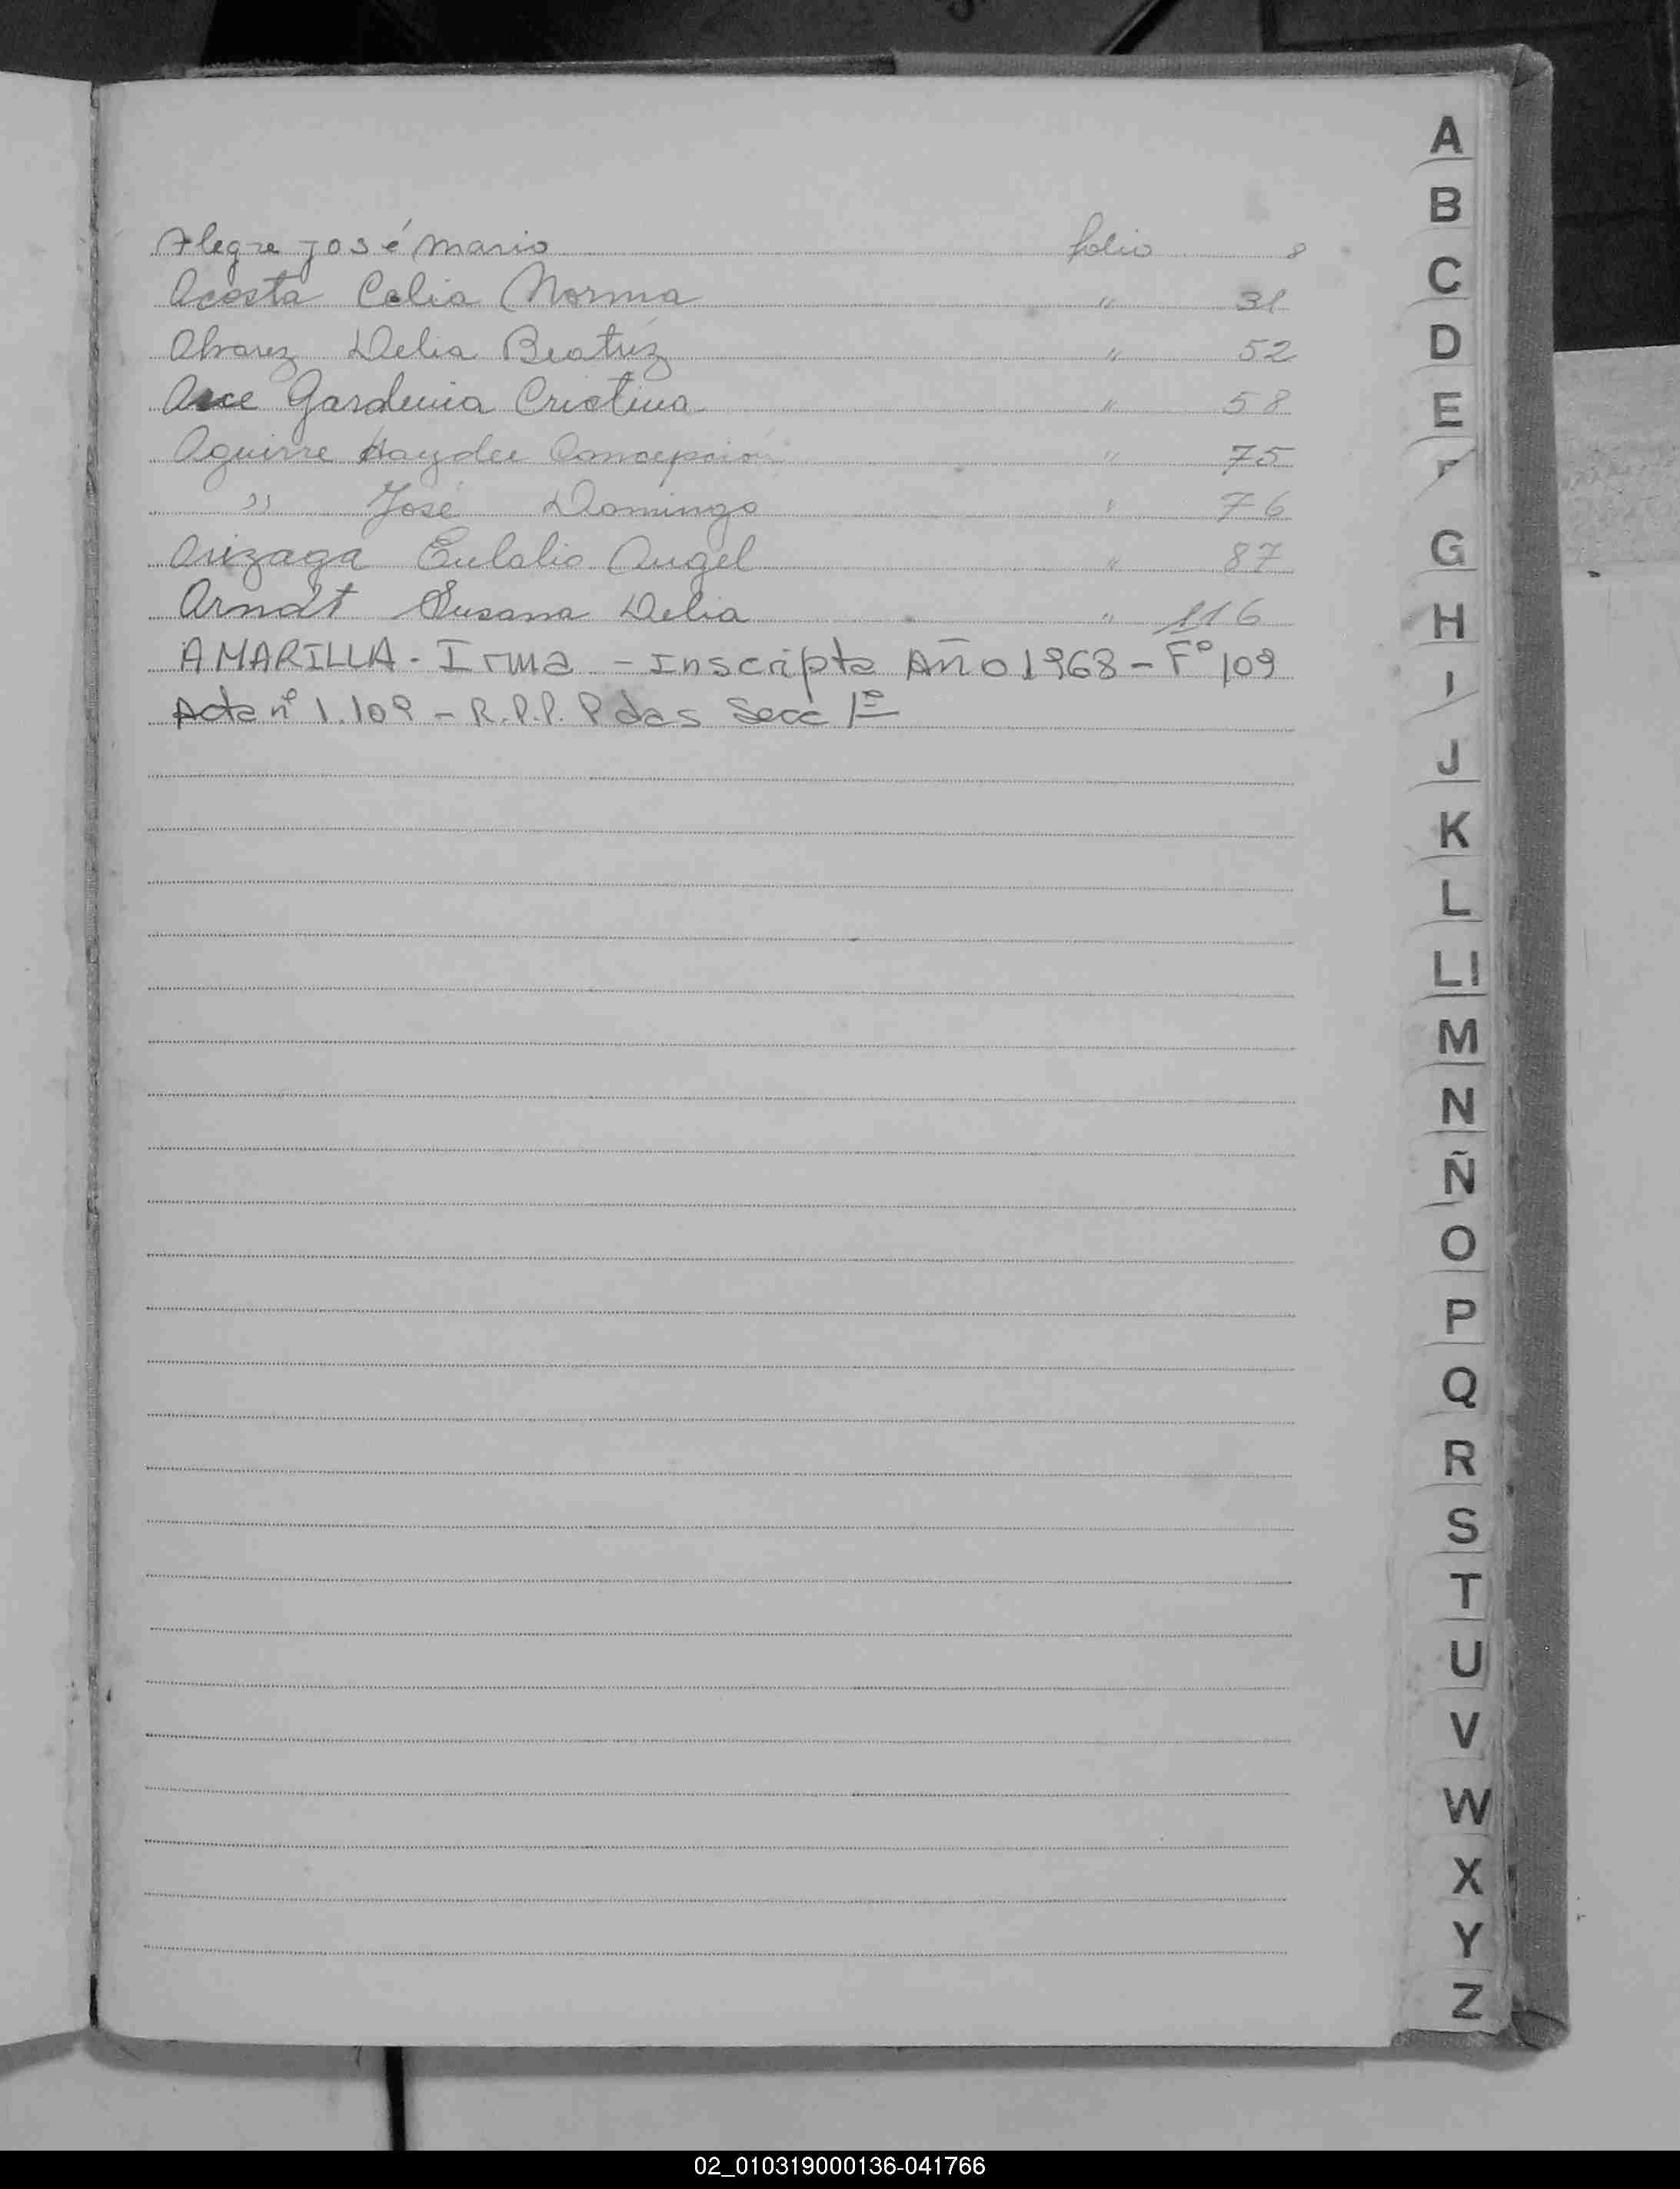 Alegre José Mario folio 8
Acosta Celia Norma " 31
Alvarez Delia Beatriz " 52
Arce Gardenia Cristina " 58
Aguirre Haydee Concepción " 75
" José Domingo " 76
Arizaga Eulalio Angel " 87
Arndt Susana Delia " 116
AMARILLA - Irma - Inscripta Año 1968 - Fº 109
Acta nº 1.109 - R.P.P. Pdas Secc 1º
A
B
C
D
E
F
G
H
I
J
K
L
Ll
M
N
Ñ
O
P
Q
R
S
T
U
V
W
X
Y
Z
02_010319000136-041766